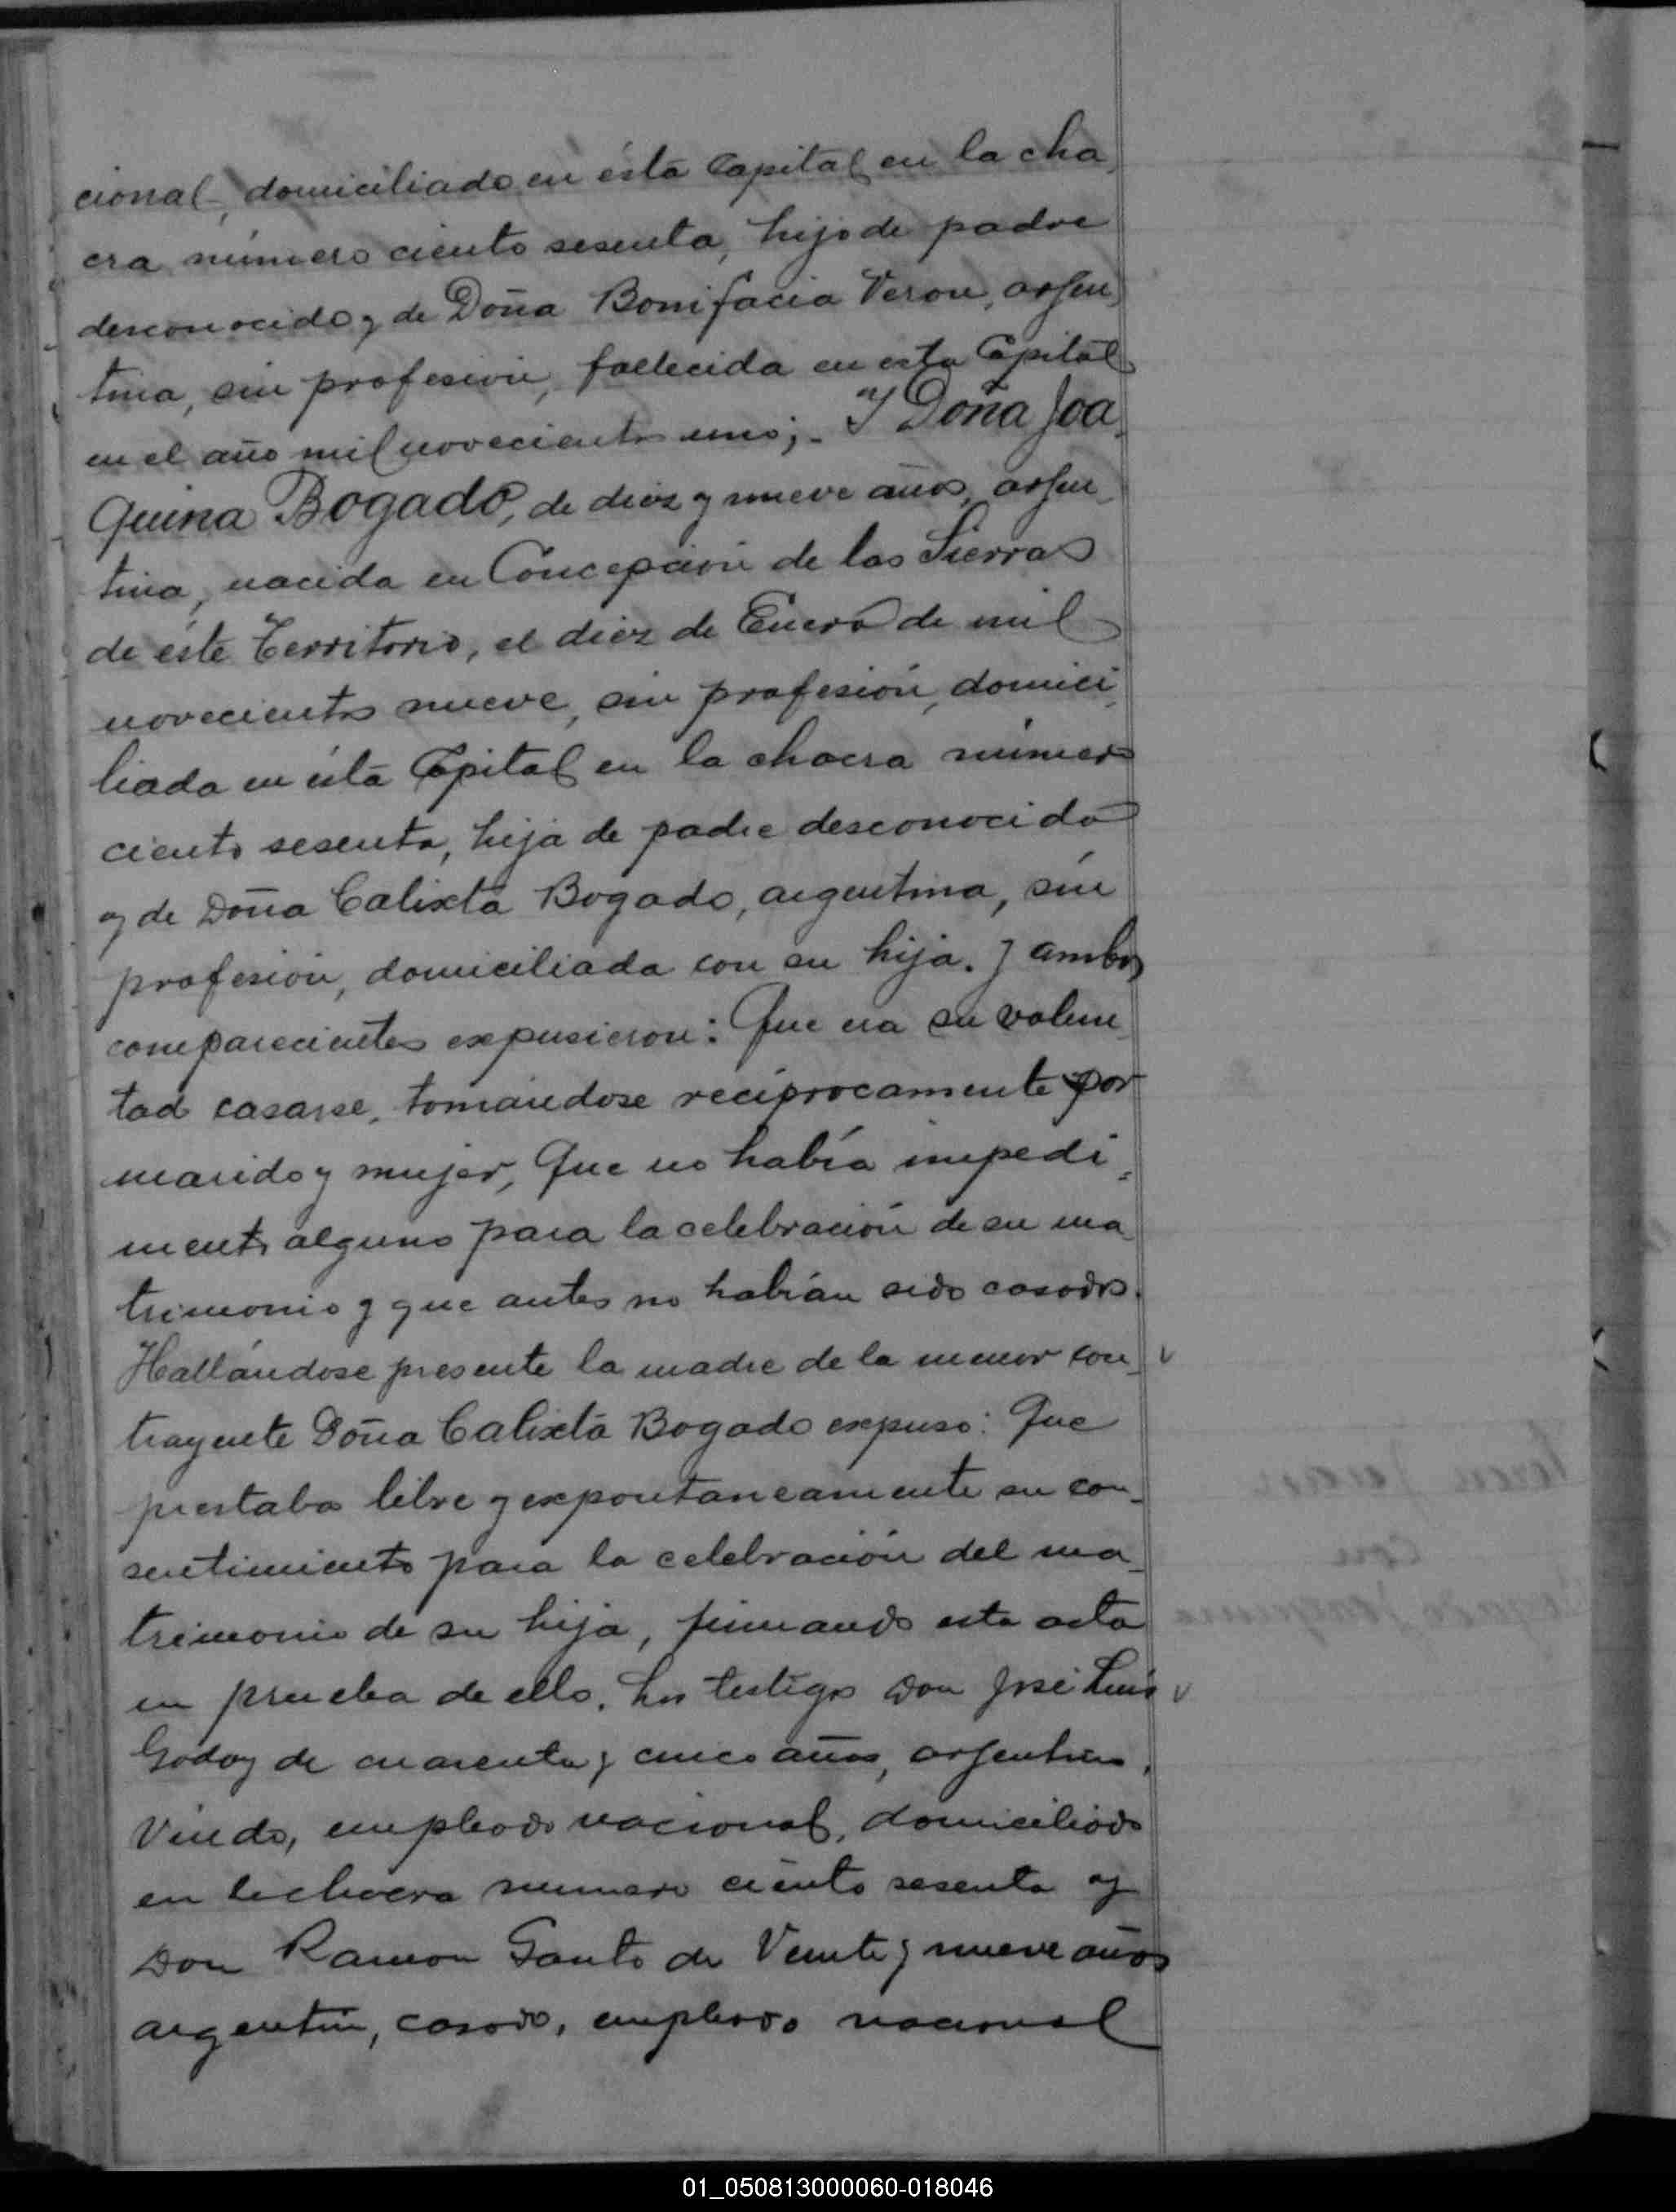 cional, domiciliado en ésta Capital en la cha
cra número ciento sesenta, hijo de padre
desconocido y de Doña Bonifacia Veron, argen
tina, sin profesión, fallecida en esta Capital
en el año mil novecientos uno;- Y Doña Joa
quina Bogado, de diez y nueve años, argen
tina, nacida en Concepción de las Sierras
de éste Territorio, el diez de Enero de mil
novecientos nueve, sin profesión, domici
liada en ésta Capital en la chacra número
ciento sesenta, hija de padre desconocido
y de Doña Calixta Bogado, argentina, sin
profesión, domiciliada con su hija. Y ambos
comparecientes expusieron: Que era su volun
tad casarse, tomándose recíprocamente por
marido y mujer, Que no había impedi
mento alguno para la celebración de su ma
trimonio y que antes no habían sido casados.
Hallándose presente la madre de la menor con
trayente Doña Calixta Bogado expuso: Que
prestaba libre y expontaneamente su con-
sentimiento para la celebración del ma
trimonio de su hija, firmando esta acta
en prueba de ello. Los testigos Don José Luis
Godoy de cuarenta y cinco años, argentino,
Viudo, empleado nacional, domiciliado
en la chacra numero ciento sesenta y
Don Ramon de Veinte y nueve años
argentino, casado, empleado nacional
01_050813000060-018046